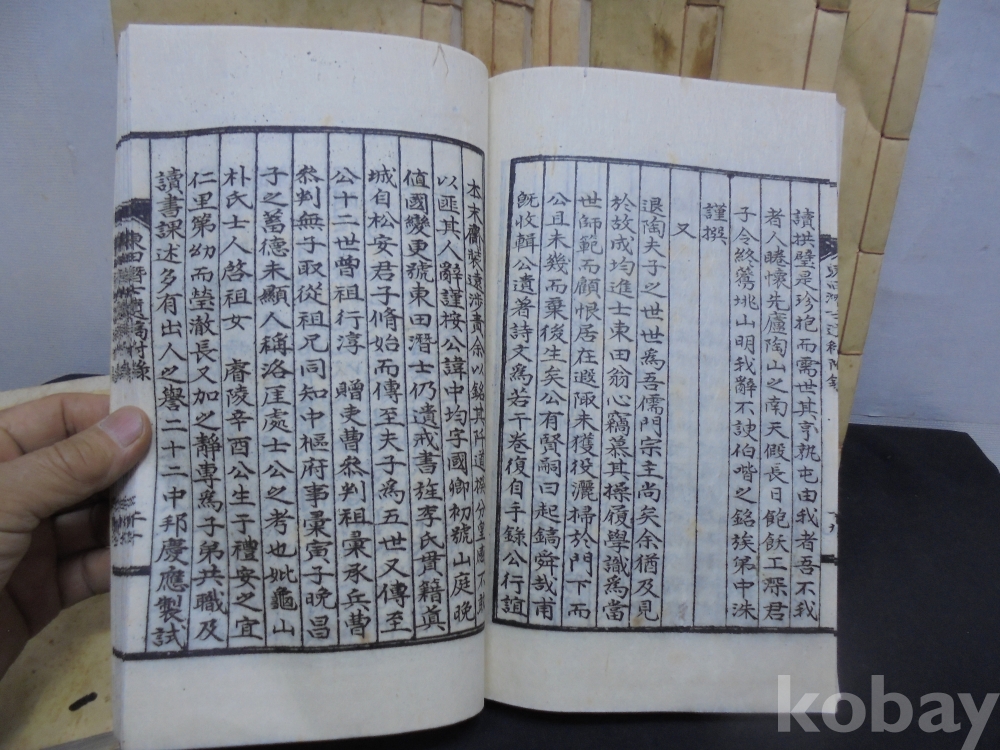 讀拱璧是珍抱而需世其亨孰屯由我者吾不我
者人睠懷先廬陶山之南天假長日飽飫工深君
子令終篤垗山明我辭不諛伯喈之銘埃第中洙
謹撰
又
退陶夫子之世世爲吾儒門宗主尚矣余猶及見
於故成均進士東田翁心竊慕其操履學識爲當
世師範而顧恨居在遐陬未獲役灑掃於門下而
公且未幾而棄後生矣公有賢嗣曰起鎬舜哉甫
旣收輯公遺著詩文爲若干卷復自手錄公行誼
本末齎裝遠涉責余以銘其阡道揆分皇遽不敢
以匪其人辭謹按公諱中均字國卿初號山庭晚
値國變更號東田潛士仍遺戒書旌李氏貫籍眞
城自松安君子脩始而傳至夫子爲五世又傳至
公十二世曾祖行淳贈吏曹叅判祖彙承兵曹
叅判無子取從祖兄同知中樞府事彙寅子晚昌
子之蓄德未顯人稱洛厓處士公之考也妣龜山
朴氏士人啓祖女 睿陵辛酉公生于禮安之宜
仁里第幼而瑩澈長又加之靜專爲子弟共職及
讀書課述多有出人之譽二十二中邦慶應製試
kobay